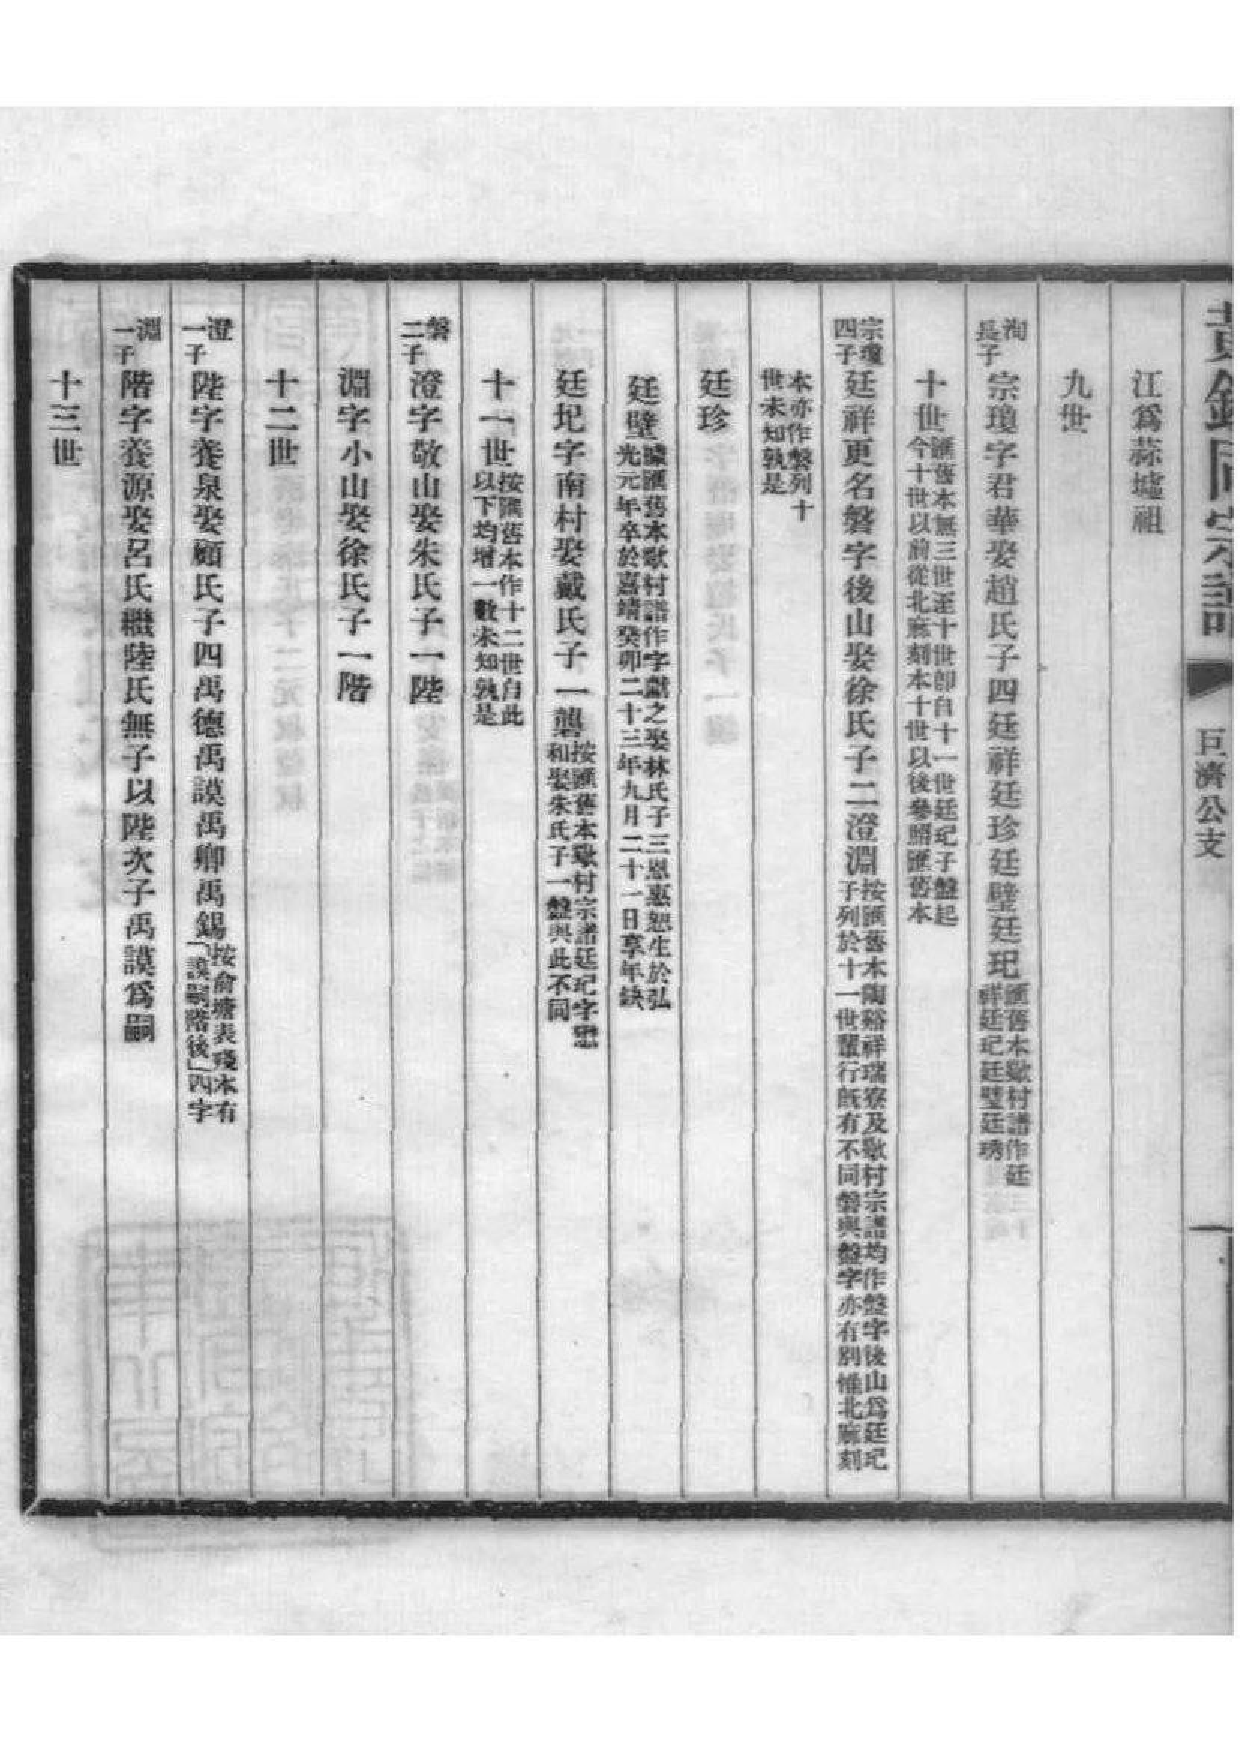 黃鉞同宗譜 巨濟公支 一
江爲蒜墟祖
九世
洵長子 宗瓊字君華娶趙氏子四廷祥廷珍廷璧廷玘 匯舊本歇村譜作廷祥廷玘廷璧廷琇
十世 匯舊本無三世至十世卽自十一世廷玘子盤起今十世以前從北麻刻本十世以後參照匯舊本
宗瓊四子 廷祥更名磐字後山娶徐氏子二澄淵 按匯舊本陶谿祥瑞寮及歇村宗譜均作盤字後山爲廷玘子列於十一世輩行旣有不同磐與盤字亦有別惟北麻刻
本亦作磐列十世未知孰是
廷珍
廷璧 匯舊本歇村譜作字獻之娶林氏子三恩惠恕生於弘光元年卒於嘉靖癸卯二十三年九月二十一日享年缺
廷玘字南村娶戴氏子一礱 按匯舊本歇村宗譜廷玘字思和娶朱氏子一盤與此不同
十一世 按匯舊本作十二世自此以下均增一數未知孰是
磐二子 澄字敬山娶朱氏子一陛
淵字小山娶徐氏子一階
十二世
澄一子 陛字養泉娶顧氏子四禹德禹謨禹卿禹錫 按俞塘表殘本有「謨嗣階後」四字
淵一子 階字養源娶呂氏繼陸氏無子以陛次子禹謨爲嗣
十三世